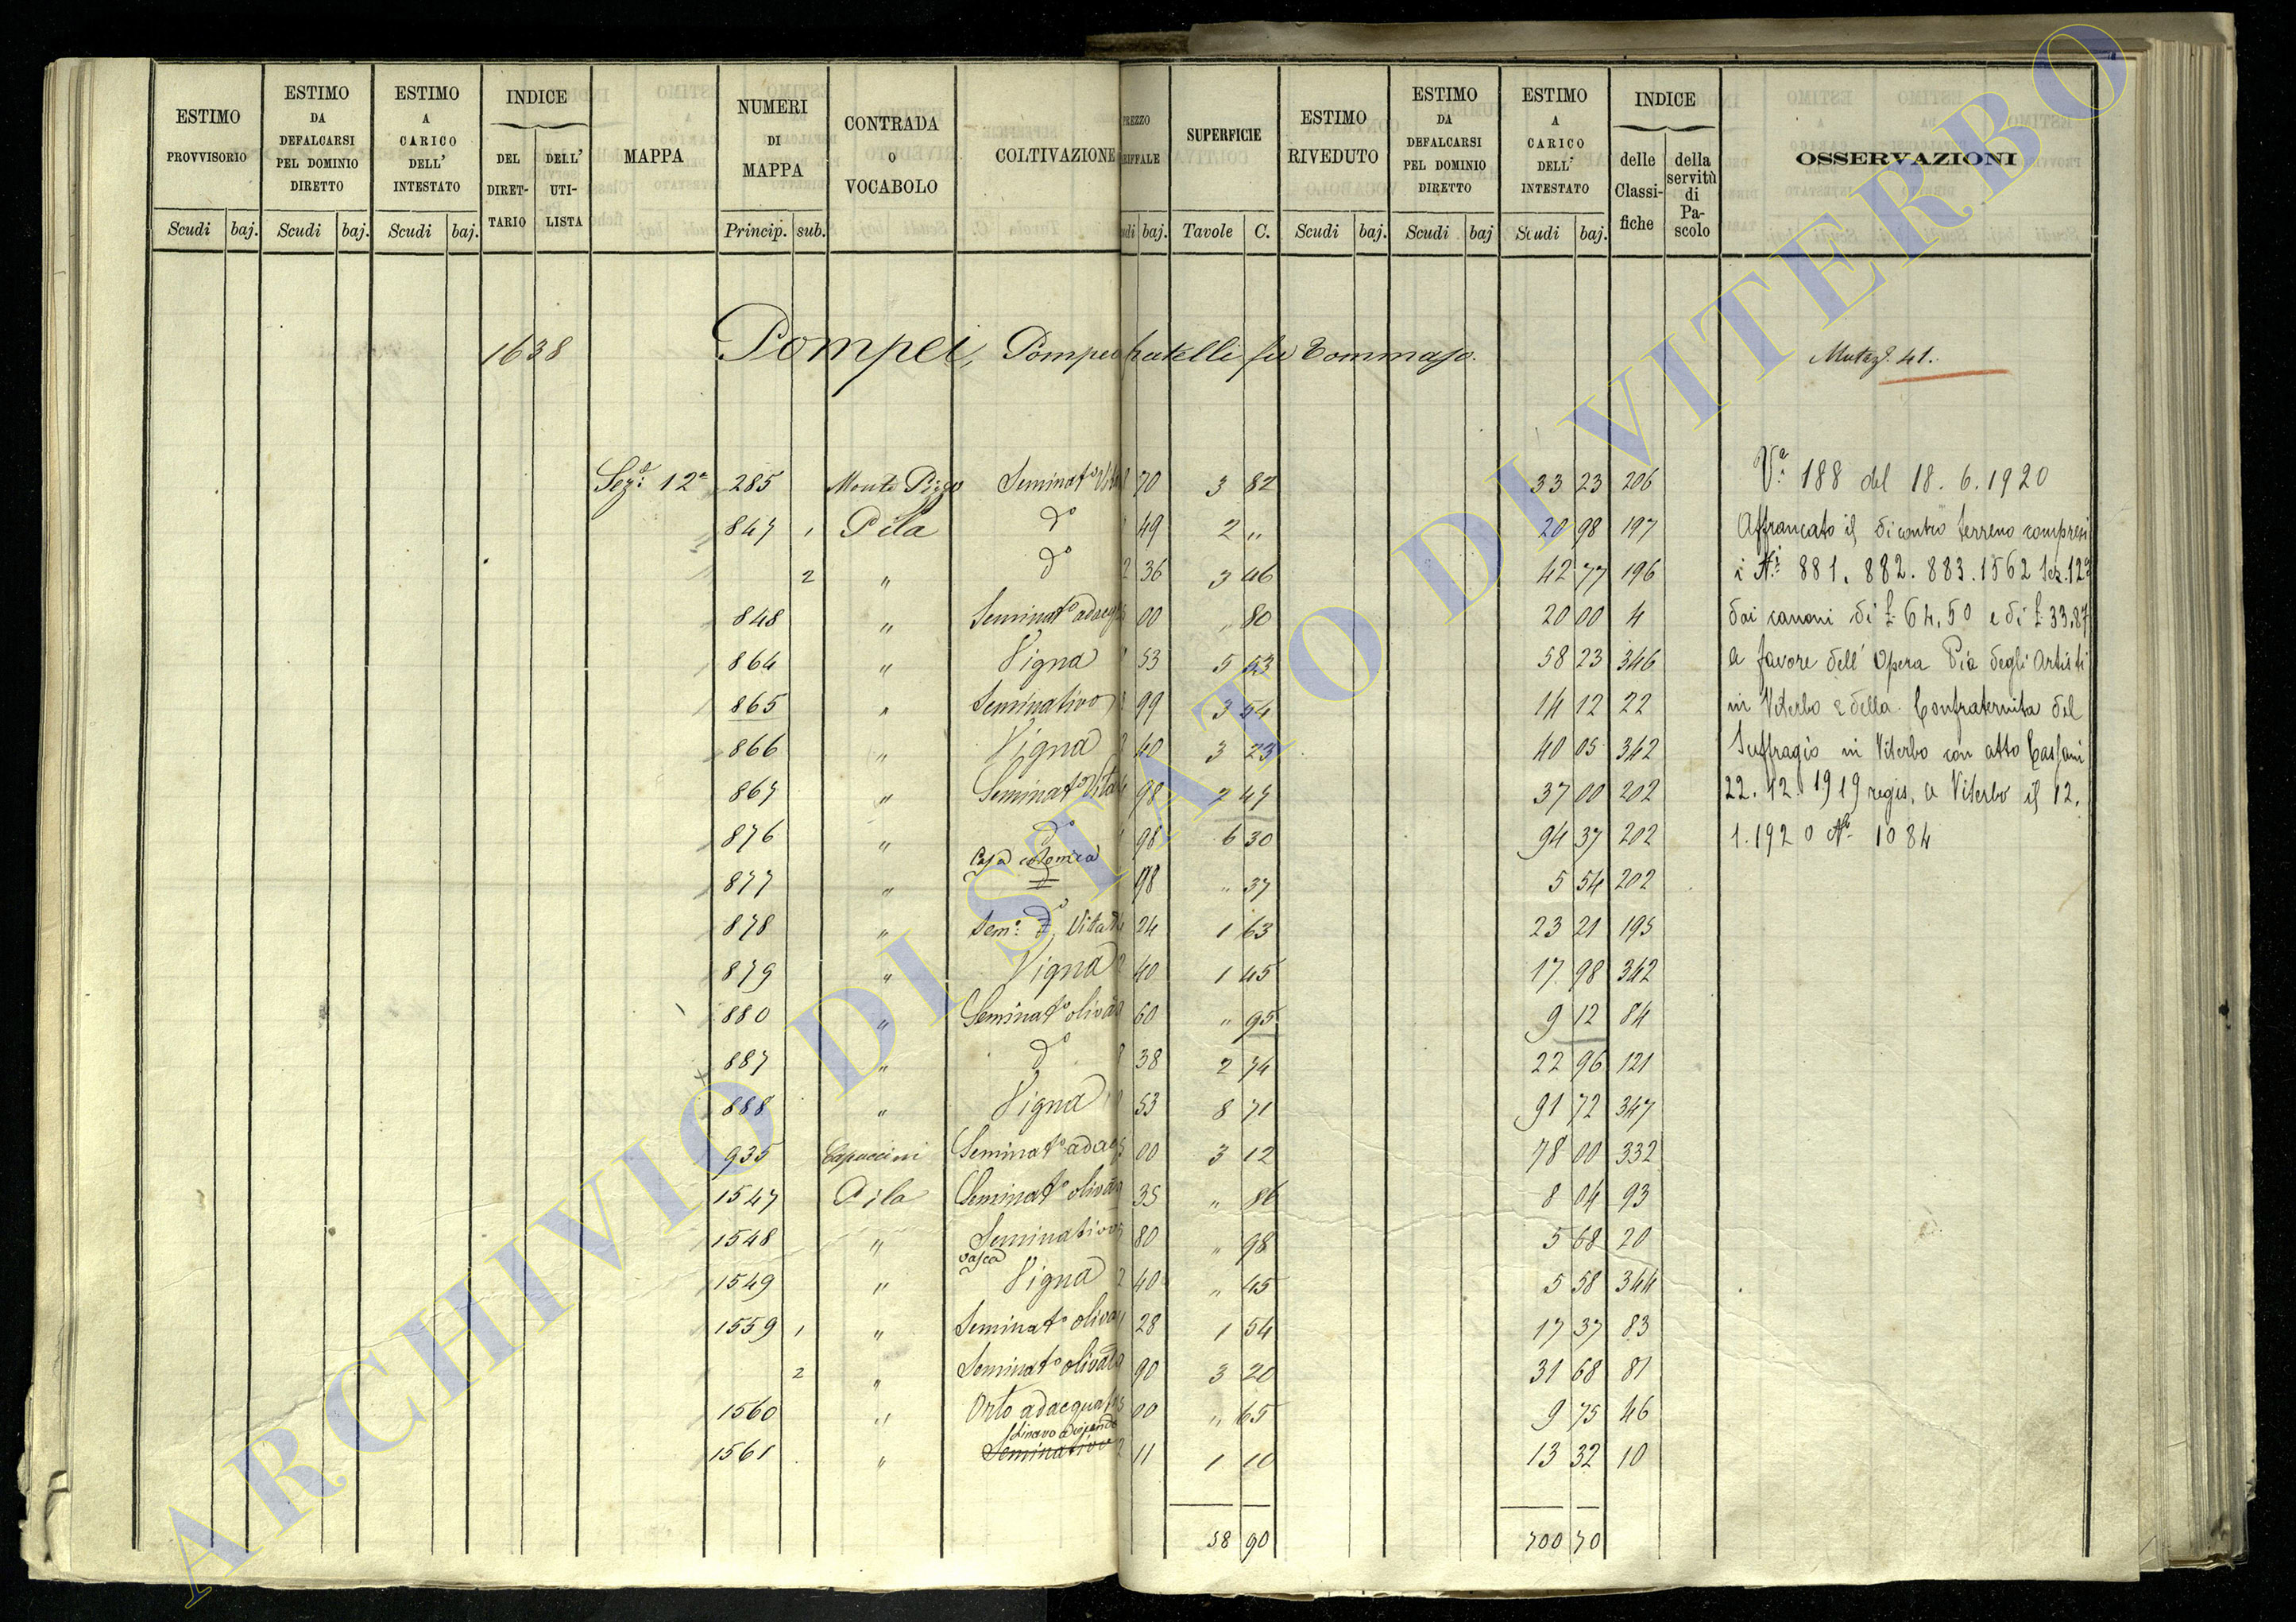 ESTIMO PROVVISORIO | ESTIMO DA DEFALCARSI PEL DOMINIO DIRETTO | ESTIMO A CARICO DELL' INTESTATO | INDICE DEL DIRET-TARIO | DELL' UTI-LISTA | MAPPA | NUMERI DI MAPPA | CONTRADA O VOCABOLO | COLTIVAZIONE | SUPERFICIE | ESTIMO RIVEDUTO | ESTIMO DA DEFALCARSI PEL DOMINIO DIRETTO | ESTIMO A CARICO DELL' INTESTATO | INDICE delle Classi-fiche | della servitù di Pa-scolo | OSSERVAZIONI
Scudi baj. Scudi baj. Scudi baj. Princip. sub. baj. Tavole C. Scudi baj. Scudi baj Scudi baj.
1638 Pompei, Pompeo fratelli fu Tommaso.
Sez.e 12a 285 Monte Pizzo Seminat.o 70 3 82 33 23 206
847 1 Pila do 49 2 " 20 98 197
2 " do 36 3 46 42 77 196
848 " Seminat.o adacq 00 " 80 20 00 4
864 " Vigna 53 5 53 58 23 346
865 " Seminativo 99 3 54 14 12 22
866 " Vigna 40 3 23 40 05 342
867 " Seminat.o Vita 98 2 47 37 00 202
876 " do 98 6 30 94 37 202
Casa colonica
877 " 98 " 37 5 54 202
878 " Sem.o do Vitat 24 1 63 23 21 195
879 " Vigna 40 1 45 17 98 342
880 " Seminat.o olivat 60 " 95 9 12 84
887 " do 38 2 74 22 96 121
888 " Vigna 53 8 71 91 72 347
935 Capuccini Seminat.o adacq 00 3 12 78 00 332
1547 Pila Seminat.o olivat 35 " 86 8 04 93
1548 " Seminativo 80 " 98 5 68 20
vasca
1549 " Vigna 40 " 45 5 58 344
1559 1 " Seminat.o oliva 28 1 54 17 37 83
2 " Seminat.o olivat 90 3 20 31 68 81
1560 " Orto adacquat 00 " 65 9 75 46
1561 " Seminativo 11 1 10 13 32 10
58 90 700 70
Mutaz.e 41.
V.a 188 del 18.6.1920
Affrancato il dicontro terreno compresi
i N.i 881. 882. 883. 1562 Sez. 12a
dai canoni di £ 64,50 e di £ 33,87
a favore dell' Opera Pia degli Artisti
in Viterbo e della Confraternita del
Suffragio in Viterbo con atto
22.12.1919 regis. a Viterbo il 12.
1.1920 N. 1084
ARCHIVIO DI STATO DI VITERBO